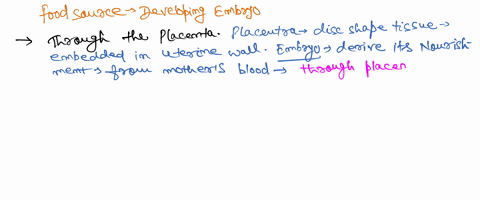 food source → Developing Embryo
→ Through the Placenta. Placentra → disc shape tissue →
embedded in uterine wall. Embryo → derive its Nourish-
ment → from mother's blood → through placen